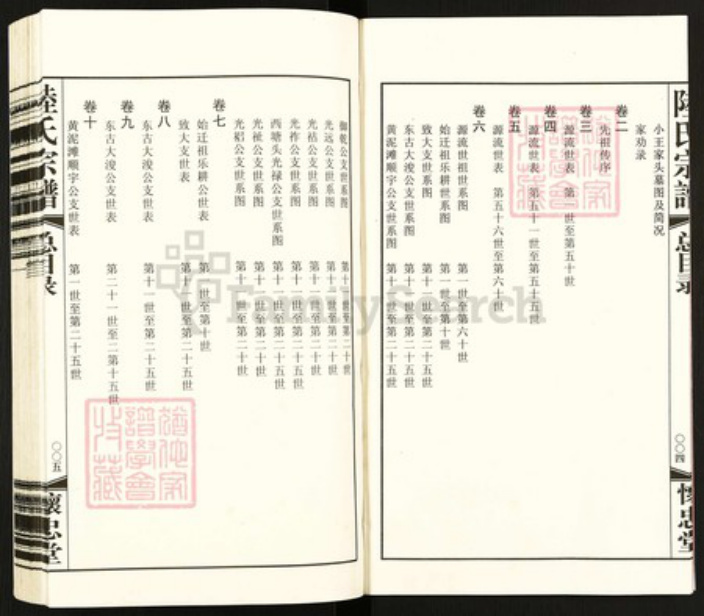 陸氏宗譜
总目录
〇〇四
懷忠堂
小王家头墓图及简况
家劝录
卷二
先祖传序
卷三
源流世表 第一世至第五十世
卷四
源流世表 第五十一世至第五十五世
卷五
源流世表 第五十六世至第六十世
卷六
源流世祖世系图 第一世至第六十世
始迁祖乐耕世系图 第一世至第十世
致大支世系图 第十一世至第二十五世
东古大浚公支世系图 第十一世至第二十五世
黄泥滩顺宇公支世系图 第十一世至第二十五世
御乾公支世系图 第十一世至第二十世
光远公支世系图 第十一世至第二十世
光祜公支世系图 第十一世至第二十世
光祚公支世系图 第十一世至第二十五世
西塘头光禄公支世系图 第十一世至第二十五世
光祉公支世系图 第十一世至第二十世
光祒公支世系图 第十一世至第二十世
卷七
始迁祖乐耕公世表 第一世至第十世
致大支世表 第十一世至第二十五世
卷八
东古大浚公支世表 第十一世至第二十五世
卷九
东古大浚公支世表 第二十一世至二第十五世
卷十
黄泥滩顺宇公支世表 第一世至第二十五世
陸氏宗譜
总目录
〇〇五
懷忠堂
FamilySearch
猶他家
譜學會
收藏